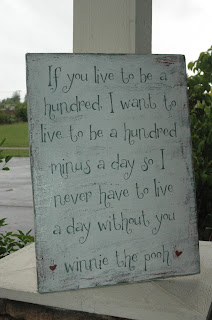 If you live to be a
hundred, I want to
live to be a hundred
minus a day so I
never have to live
a day without you
winnie the pooh